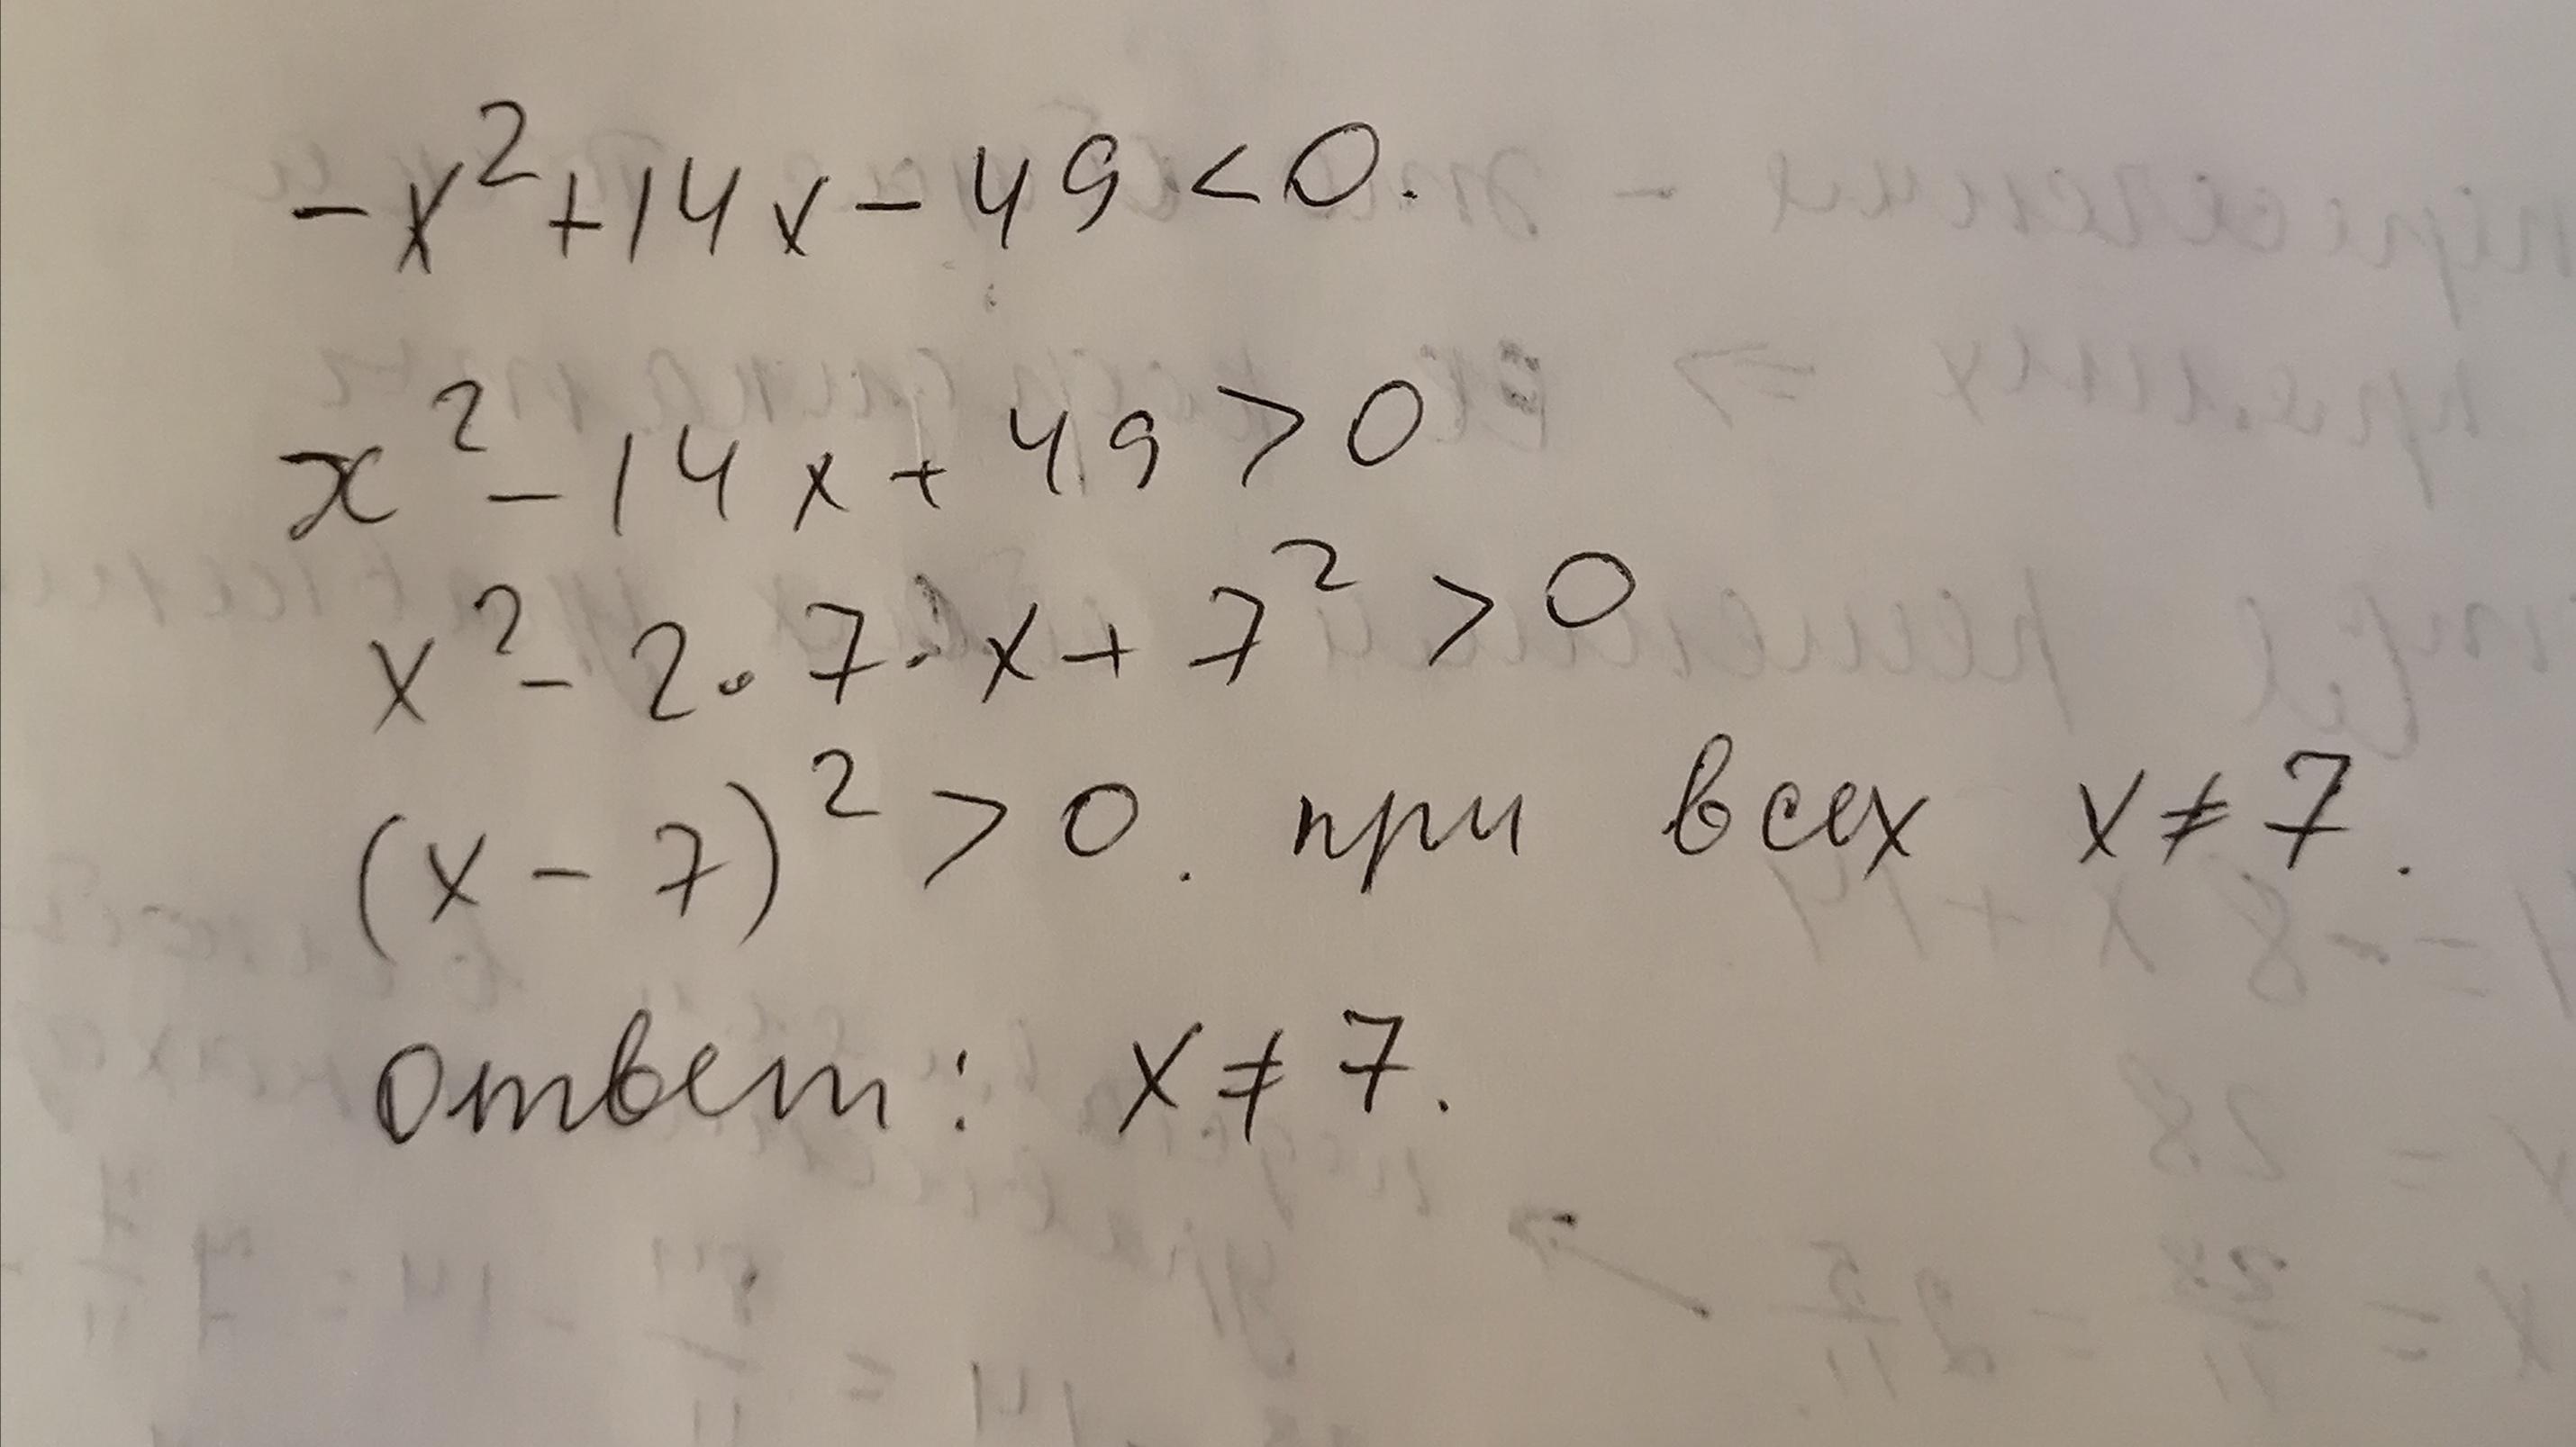 -x²+14x-49<0.
x²-14x+49>0
x²-2·7·x+7²>0
(x-7)²>0. при всех x≠7.
ответ: x≠7.